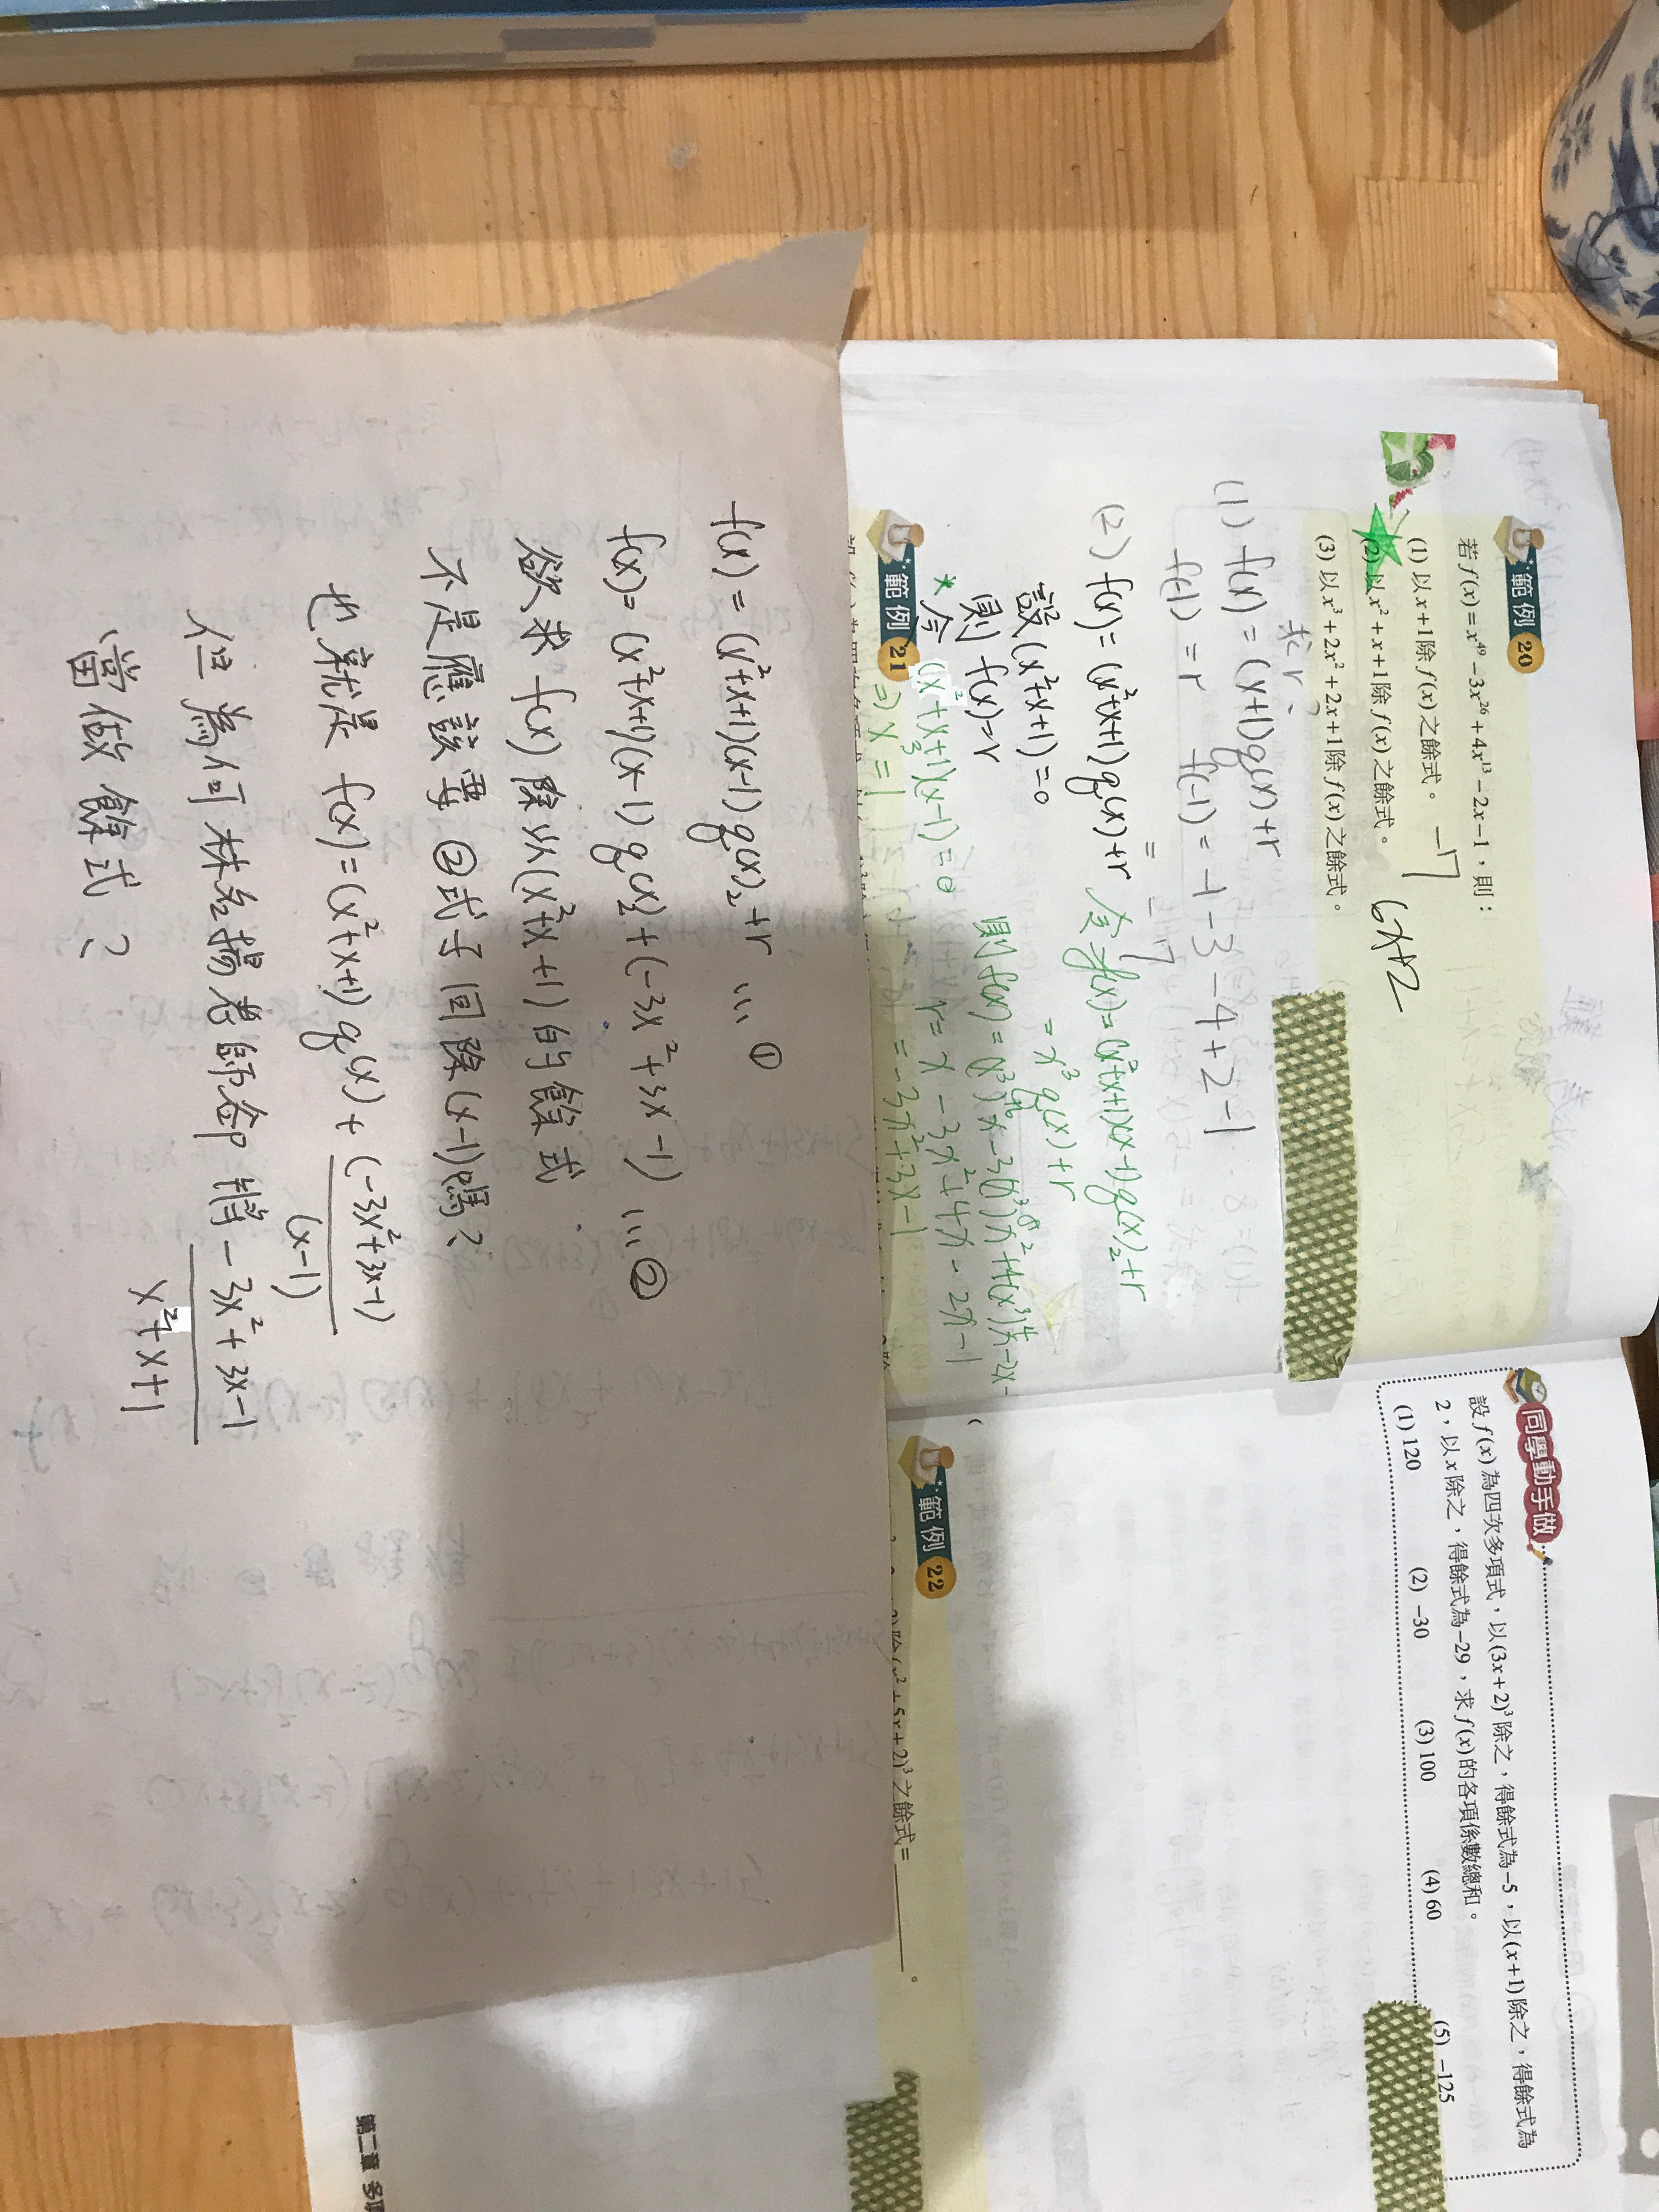 範例 20
若 f(x) = x⁴⁹ − 3x²⁶ + 4x¹³ − 2x − 1，則：
(1) 以 x + 1 除 f(x) 之餘式。 −17
(2) 以 x² + x + 1 除 f(x) 之餘式。 6x+2
(3) 以 x³ + 2x² + 2x + 1 除 f(x) 之餘式。
求 r
(1) f(x) = (x+1)q(x)+r
f(-1) = r f(-1) = -1 -3 -4 +2 -1
= -17
(2) f(x) = (x²+x+1)q(x)+r
設 (x²+x+1)=0
則 f(x)=r
* 令 (x²+x+1)(x-1)=0
=> x³=1
令 f(x)=(x²+x+1)(x-1)q(x)₂+r
= x³ q(x)+r
則 f(x) = (x³)¹⁶x-3(x³)⁸x²+4(x³)⁴x-2x-
r = x-3x²+4x-2x-1
= -3x²+3x-1
範例 21
f(x) = (x²+x+1)(x-1)q(x)₂+r ... ①
f(x) = (x²+x+1)(x-1)q(x)₂+(-3x²+3x-1) ... ②
欲求 f(x) 除以 (x²+x+1) 的餘式
不是應該要 ②式子同除 (x-1) 嗎？
也就是 f(x) = (x²+x+1)q(x) + (-3x²+3x-1)/(x-1)
但為何林名揚老師卻將 (-3x²+3x-1)/(x²+x+1)
當做餘式？
同學動手做
設 f(x) 為四次多項式，以 (3x + 2)³ 除之，得餘式為 −5，以 (x + 1) 除之，得餘式為
2，以 x 除之，得餘式為 −29，求 f(x) 的各項係數總和。
(1) 120 (2) −30 (3) 100 (4) 60 (5) −125
範例 22
除 (x² + 5x + 2)³ 之餘式 = ________。
第二章 多項